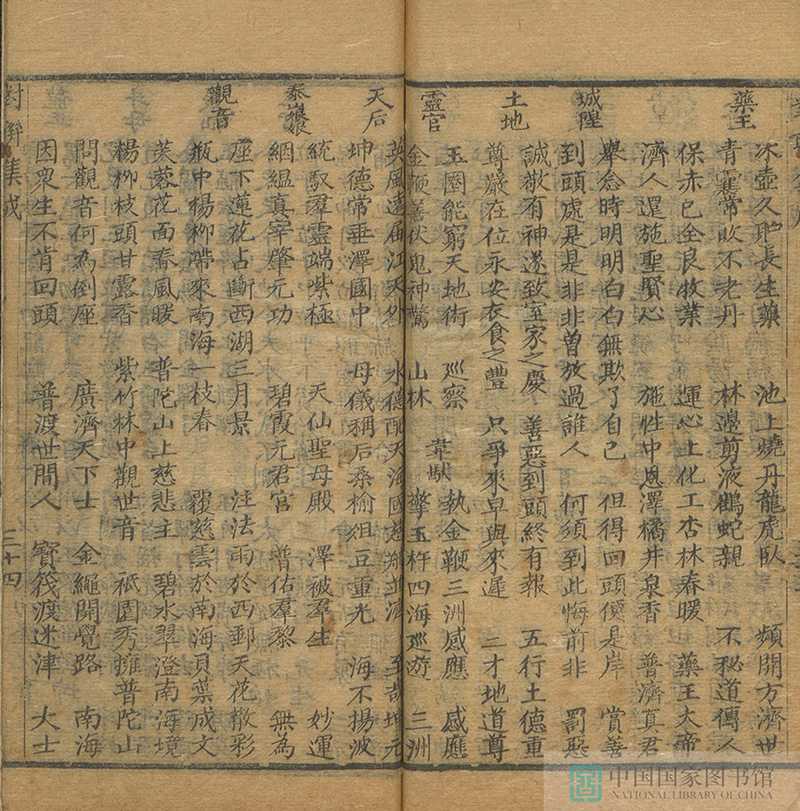 藥王
冰壺久貯長生藥 池上燒丹龍虎臥 頻開方濟世
青囊常收不老丹 林邊剪液鶴蛇親 不秘道傳人
保赤已全良牧業 運心上化工杏林春暖 藥王大帝
濟人還施聖賢心 施性中恩澤橘井泉香 普濟真君
城隍
舉念時明明白白無欺了自己 但得回頭便是岸 賞善
到頭處是是非非曾放過誰人 何須到此悔前非 罰惡
土地
誠敬有神遂致室家之慶 善惡到頭終有報 五行土德重
尊嚴在位永安衣食之豐 只爭來早與來遲 三才地道尊
靈官
玉圈能窮天地術 巡察 韋馱 執金鞭三洲感應 感應
金鞭善伏鬼神驚 山林 擎玉杵四海巡遊 三洲
天后
英風遠届江天外 水德配天海國慈航並濟 至哉坤元
坤德常垂澤國中 母儀稱后桑榆俎豆重光 海不揚波
泰山娘
統馭羣靈端紫極 天仙聖母殿 澤被羣生 妙運
絪縕真宰肇元功 碧霞元君宮 普佑羣黎 無為
觀音
座下蓮花占斷西湖三月景 注法雨於西郵天花散彩
瓶中楊柳帶來南海一枝春 覆慈雲於南海貝葉成文
芙蓉花面春風暖 普陀山上慈悲主 碧水翠澄南海境
楊柳枝頭甘露香 紫竹林中觀世音 祇園秀擁普陀山
問觀音何為倒座 廣濟天下士 金繩開覺路 南海
因衆生不肯回頭 普渡世間人 寶筏渡迷津 大士
對聯集成
三十四
中国国家图书馆
NATIONAL LIBRARY OF CHINA